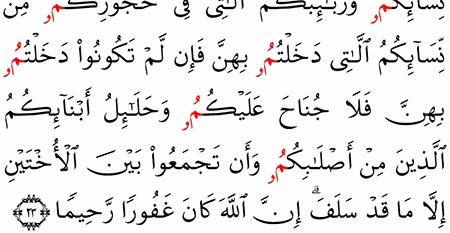 نِسَآئِكُمُۥ وَرَبَٰٓئِبُكُمُ ٱلَّٰتِى فِى حُجُورِكُمُۥ مِن
نِّسَآئِكُمُ ٱلَّٰتِى دَخَلْتُمُۥ بِهِنَّ فَإِن لَّمْ تَكُونُوا۟ دَخَلْتُمُۥ
بِهِنَّ فَلَا جُنَاحَ عَلَيْكُمُۥ وَحَلَٰٓئِلُ أَبْنَآئِكُمُ
ٱلَّذِينَ مِنْ أَصْلَٰبِكُمُۥ وَأَن تَجْمَعُوا۟ بَيْنَ ٱلْأُخْتَيْنِ
إِلَّا مَا قَدْ سَلَفَ ۗ إِنَّ ٱللَّهَ كَانَ غَفُورًا رَّحِيمًا ﴿٢٣﴾